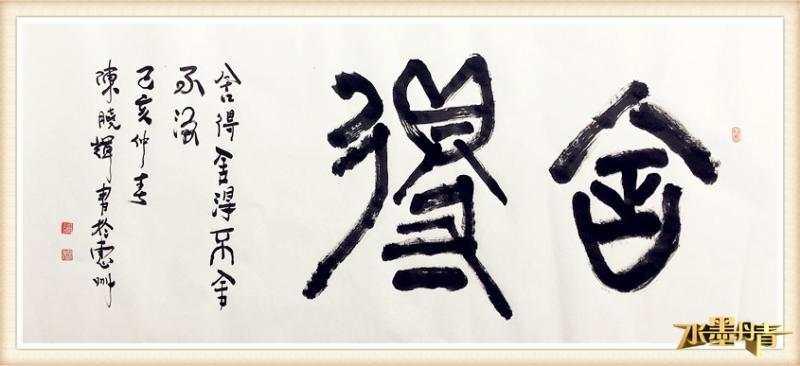 舍得
舍得舍得不舍
不得
己亥仲春
陳曉輝書於惠州
水墨丹青